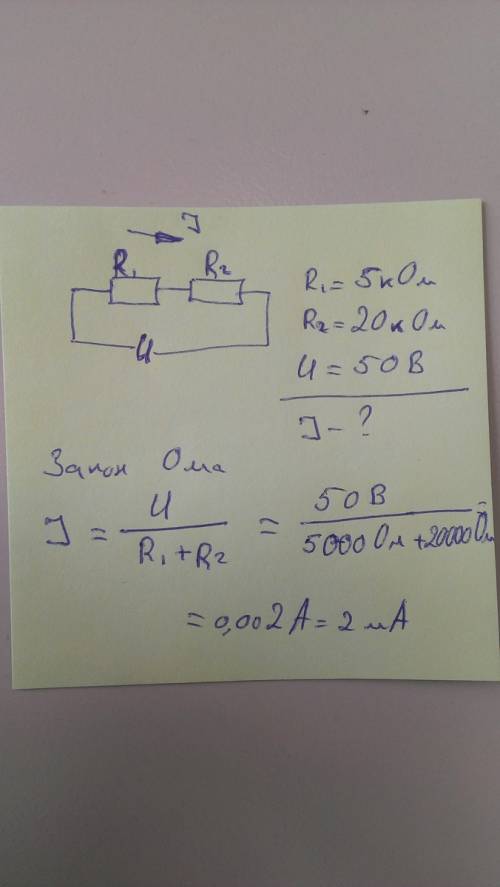 I
R₁ R₂
U
R₁ = 5 кОм
R₂ = 20 кОм
U = 50 В
I - ?
Закон Ома
I = U / (R₁ + R₂) = 50 В / (5000 Ом + 20000 Ом) =
= 0,002 А = 2 мА